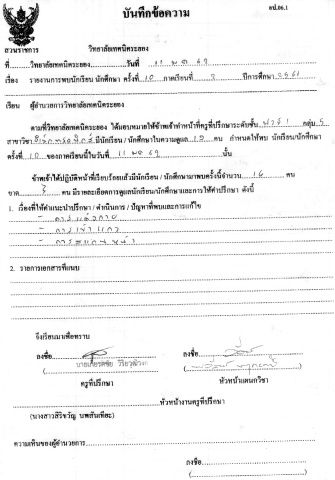 อป.06.1
บันทึกข้อความ
ส่วนราชการ วิทยาลัยเทคนิคระยอง
ที่..........วิทยาลัยเทคนิคระยอง..........วันที่ 11
เรื่อง รายงานการพบนักเรียน นักศึกษา ครั้งที่ 10 ภาคเรียนที่ 2 ปีการศึกษา 2561
เรียน ผู้อำนวยการวิทยาลัยเทคนิคระยอง
ตามที่วิทยาลัยเทคนิคระยอง ได้มอบหมายให้ข้าพเจ้าทำหน้าที่ครูที่ปรึกษาระดับชั้น กลุ่ม 5
สาขาวิชา มีนักเรียน/นักศึกษาในความดูแล คน กำหนดให้พบ นักเรียน/นักศึกษา
ครั้งที่ 10 ของภาคเรียนนี้ในวันที่ 11 นั้น
ข้าพเจ้าได้ปฏิบัติหน้าที่เรียบร้อยแล้วมีนักเรียน / นักศึกษามาพบครั้งนี้จำนวน 16 คน
ขาด คน มีรายละเอียดการดูแลนักเรียน/นักศึกษาและการให้คำปรึกษา ดังนี้
1. เรื่องที่ให้คำแนะนำปรึกษา / ดำเนินการ / ปัญหาที่พบและการแก้ไข
- การแต่งกาย
- การเข้าแถว
2. รายการเอกสารที่แนบ
จึงเรียนมาเพื่อทราบ
ลงชื่อ ลงชื่อ
ครูที่ปรึกษา หัวหน้าแผนกวิชา
หัวหน้างานครูที่ปรึกษา
(นางสาวสิริขวัญ นพสันเทียะ)
ความเห็นของผู้อำนวยการ
ลงชื่อ